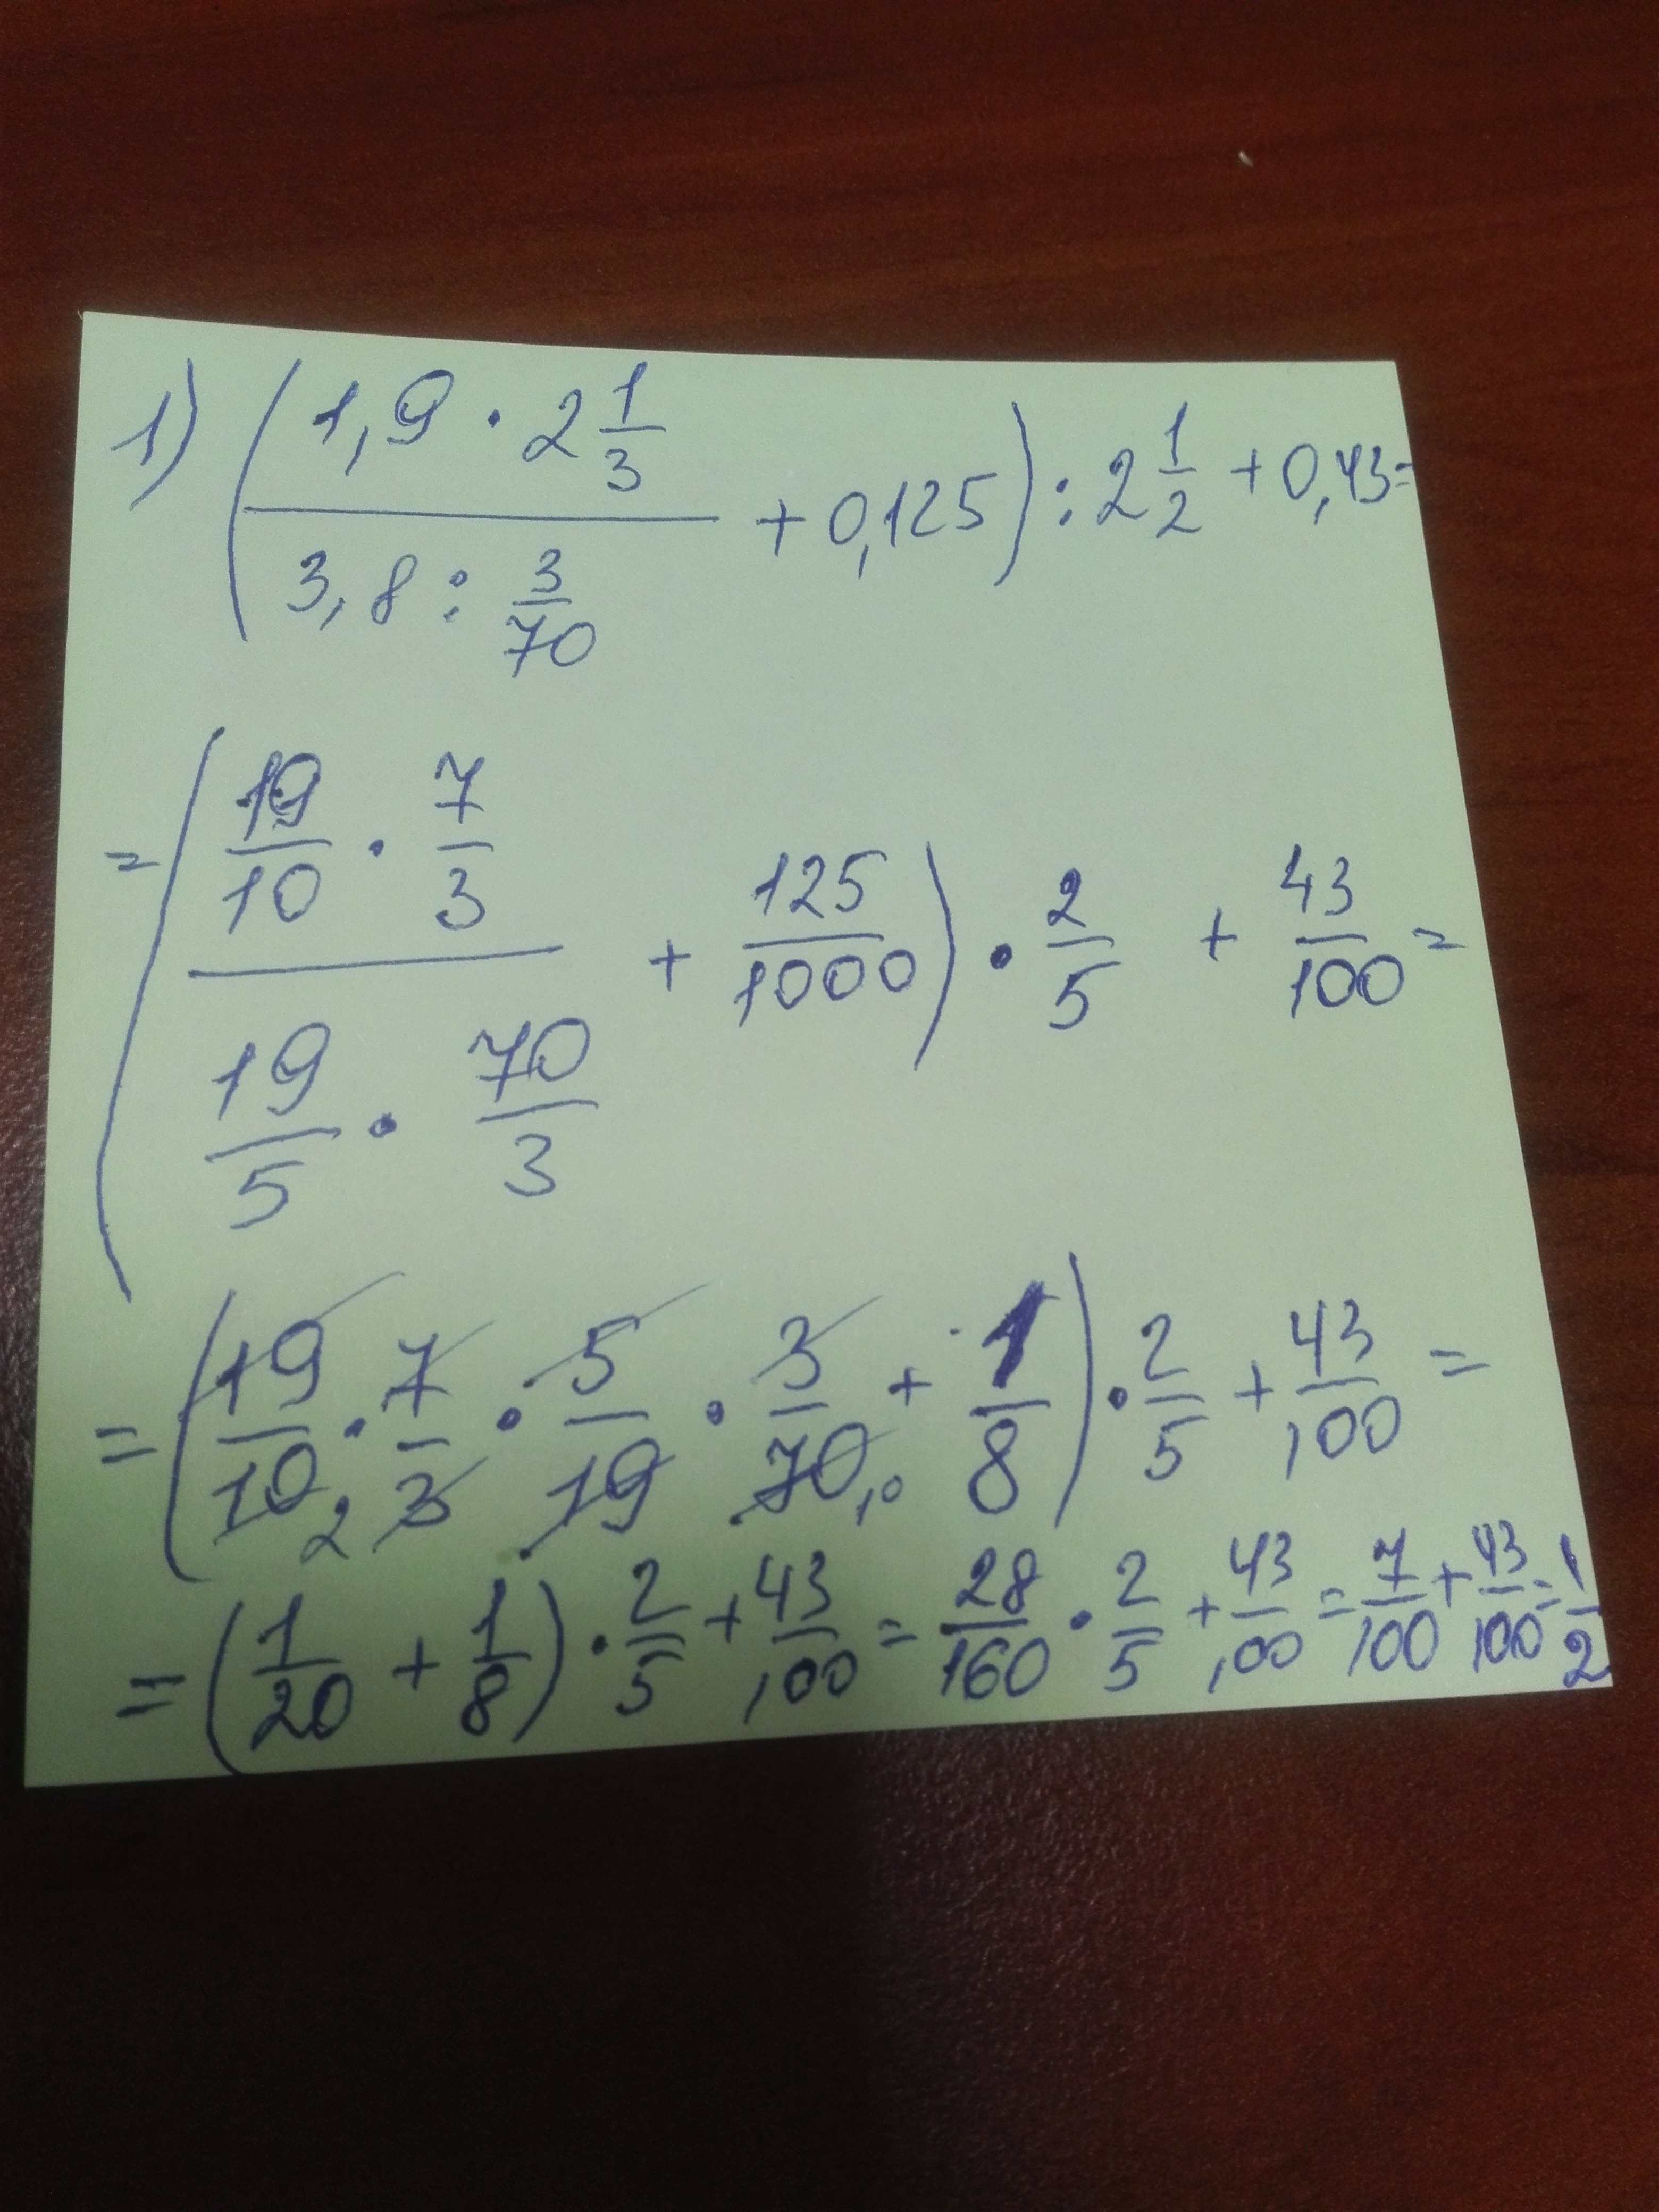 1) ((1,9 · 2 1/3)/(3,8 : 3/70) + 0,125) : 2 1/2 + 0,43 =
= ((19/10 · 7/3)/(19/5 · 70/3) + 125/1000) · 2/5 + 43/100 =
= (19/10 2 · 7/3 · 5/19 · 3/70 10 + 1/8) · 2/5 + 43/100 =
= (1/20 + 1/8) · 2/5 + 43/100 = 28/160 · 2/5 + 43/100 = 7/100 + 43/100 = 1/2